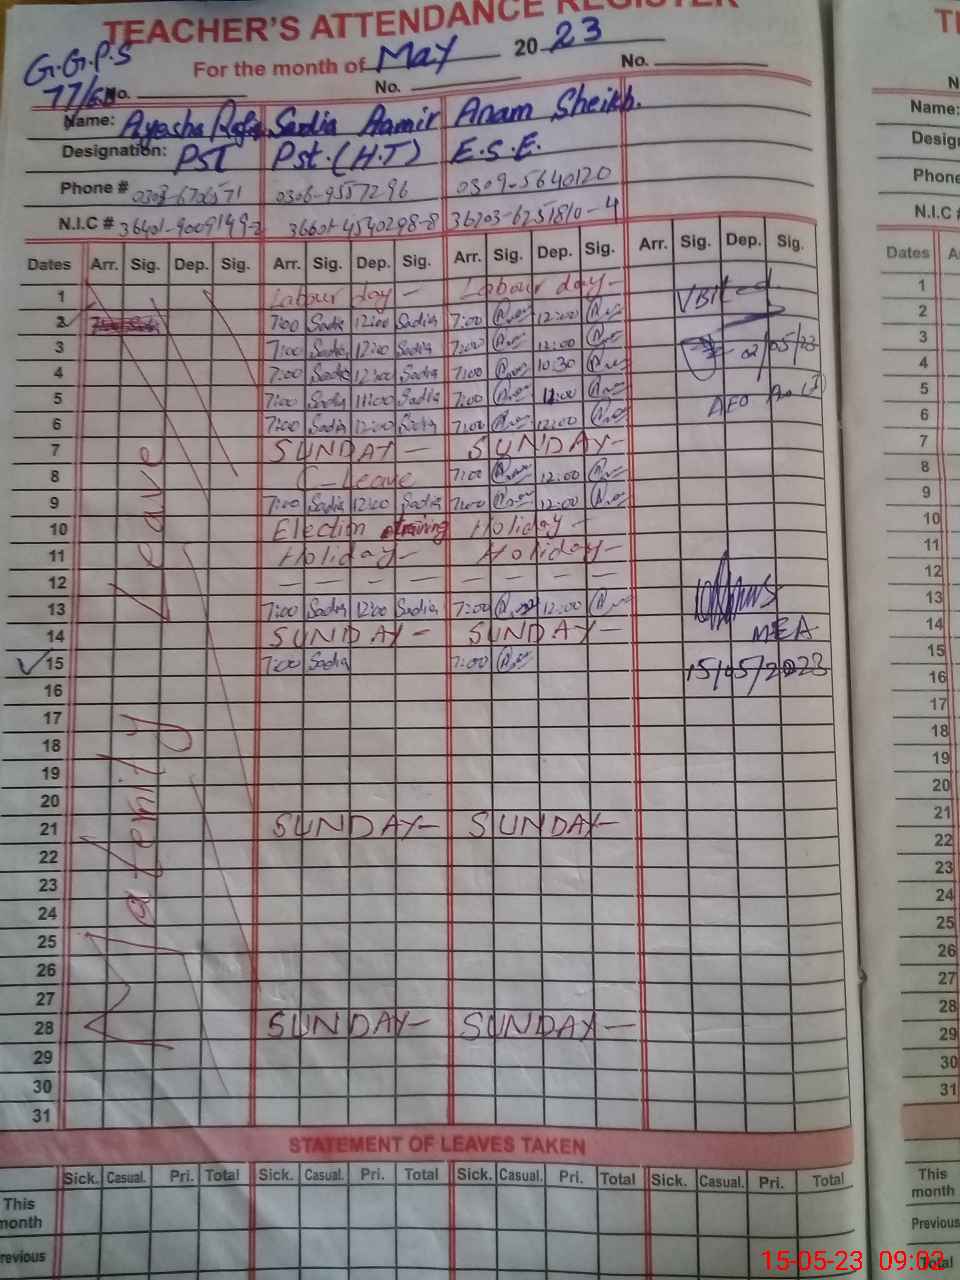 TEACHER'S ATTENDANCE REGISTER
G.G.P.S
For the month of May 2023
77/
No. No. No.
Name: Ayesha Sadia Aamir Anam Sheikh.
Designation: PST Pst.(H.T) E.S.E.
Phone # 0306-9557296 0309-5640120
N.I.C # 36601-4540298-8 36203-6251810-4
Dates Arr. Sig. Dep. Sig. Arr. Sig. Dep. Sig. Arr. Sig. Dep. Sig. Arr. Sig. Dep. Sig.
1 Labour day - Labour day -
2 7:00 Sadia 12:00 Sadia 7:00 12:00
3 7:00 Sadia 12:00 Sadia 7:00 12:00 02/05/23
4 7:00 Sadia 12:00 Sadia 7:00 10:30
5 7:00 Sadia 11:00 Sadia 7:00 12:00 AEO
6 7:00 Sadia 12:00 Sadia 7:00 12:00
7 SUNDAY - SUNDAY -
8 C-Leave 7:00 12:00
9 7:00 Sadia 12:00 Sadia 7:00 12:00
10 Election training Holiday -
11 Holiday - Holiday -
12 - - - - - - - -
13 7:00 Sadia 12:00 Sadia 7:00 12:00
14 SUNDAY - SUNDAY - MEA
15 7:00 Sadia 7:00 15/05/2023
16
17
18
19
20
21 SUNDAY - SUNDAY -
22
23
24
25
26
27
28 SUNDAY - SUNDAY -
29
30
31
Maternity Leave
STATEMENT OF LEAVES TAKEN
Sick. Casual. Pri. Total Sick. Casual. Pri. Total Sick. Casual. Pri. Total Sick. Casual. Pri. Total
This
month
Previous
Name:
Phone
N.I.C #
Dates
1
2
3
4
5
6
7
8
9
10
11
12
13
14
15
16
17
18
19
20
21
22
23
24
25
26
27
28
29
30
31
This
month
Previous
Total
15-05-23 09:03